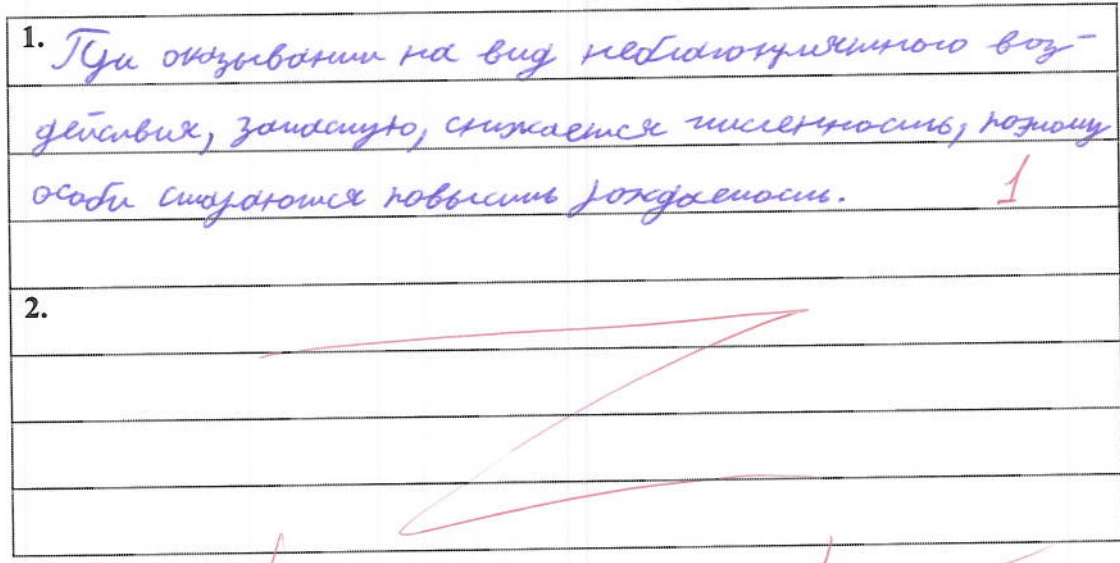 1. При оказывании на вид неблагоприятного воз-
действия, зачастую, снижается численность, поэтому
особи стараются повысить рождаемость. 1
2.